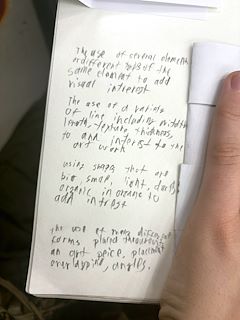 The use of several elements
or different parts of the
same element to add
visual interest
The use of a variety
of line including width
length, texture, thickness,
to add interest to the
art work
using shapes that are
big, small, light, dark,
organic in order to
add intrest
The use of many different
forms placed throughout
an art peice, placement
overlapping, angles.